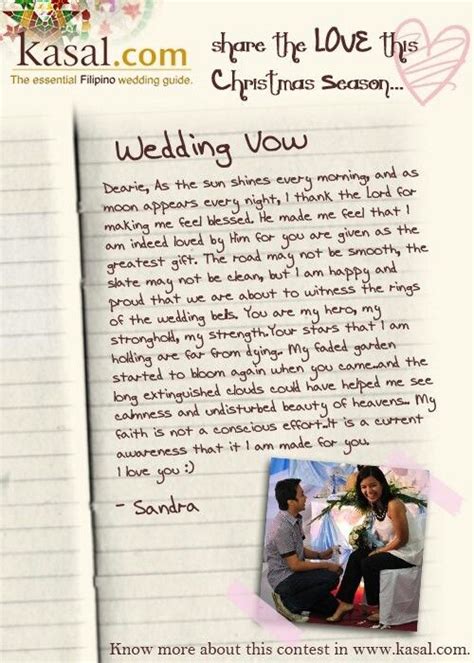 Kasal.com
The essential Filipino wedding guide.
share the LOVE this
Christmas Season...
Wedding Vow
Dearie, As the sun shines every morning, and as
moon appears every night, I thank the Lord for
making me feel blessed. He made me feel that I
am indeed loved by Him for you are given as the
greatest gift. The road may not be smooth, the
slate may not be clean, but I am happy and
proud that we are about to witness the rings
of the wedding bells. You are my hero, my
stronghold, my strength.Your stars that I am
holding are far from dying... My faded garden
started to bloom again when you came...and the
long extinguished clouds could have helped me see
calmness and undisturbed beauty of heavens... My
faith is not a conscious effort..It is a current
awareness that it I am made for you.
I love you :)
- Sandra
Know more about this contest in www.kasal.com.